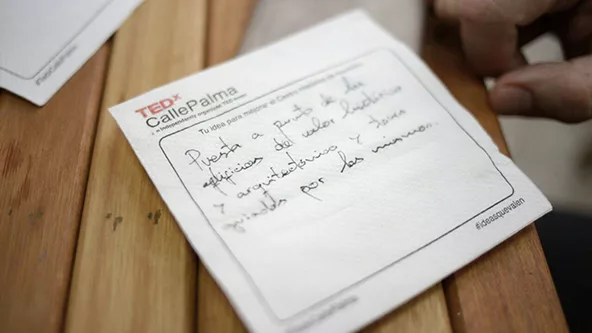 TEDx
CallePalma
x = independently organized TED event
Tu idea para mejorar el Centro Histórico de
Puesta a punto de los
edificios del valor histórico
y arquitectónico y tours
guiados por los mismos.
#ideasquevalen
#ideasquevalen